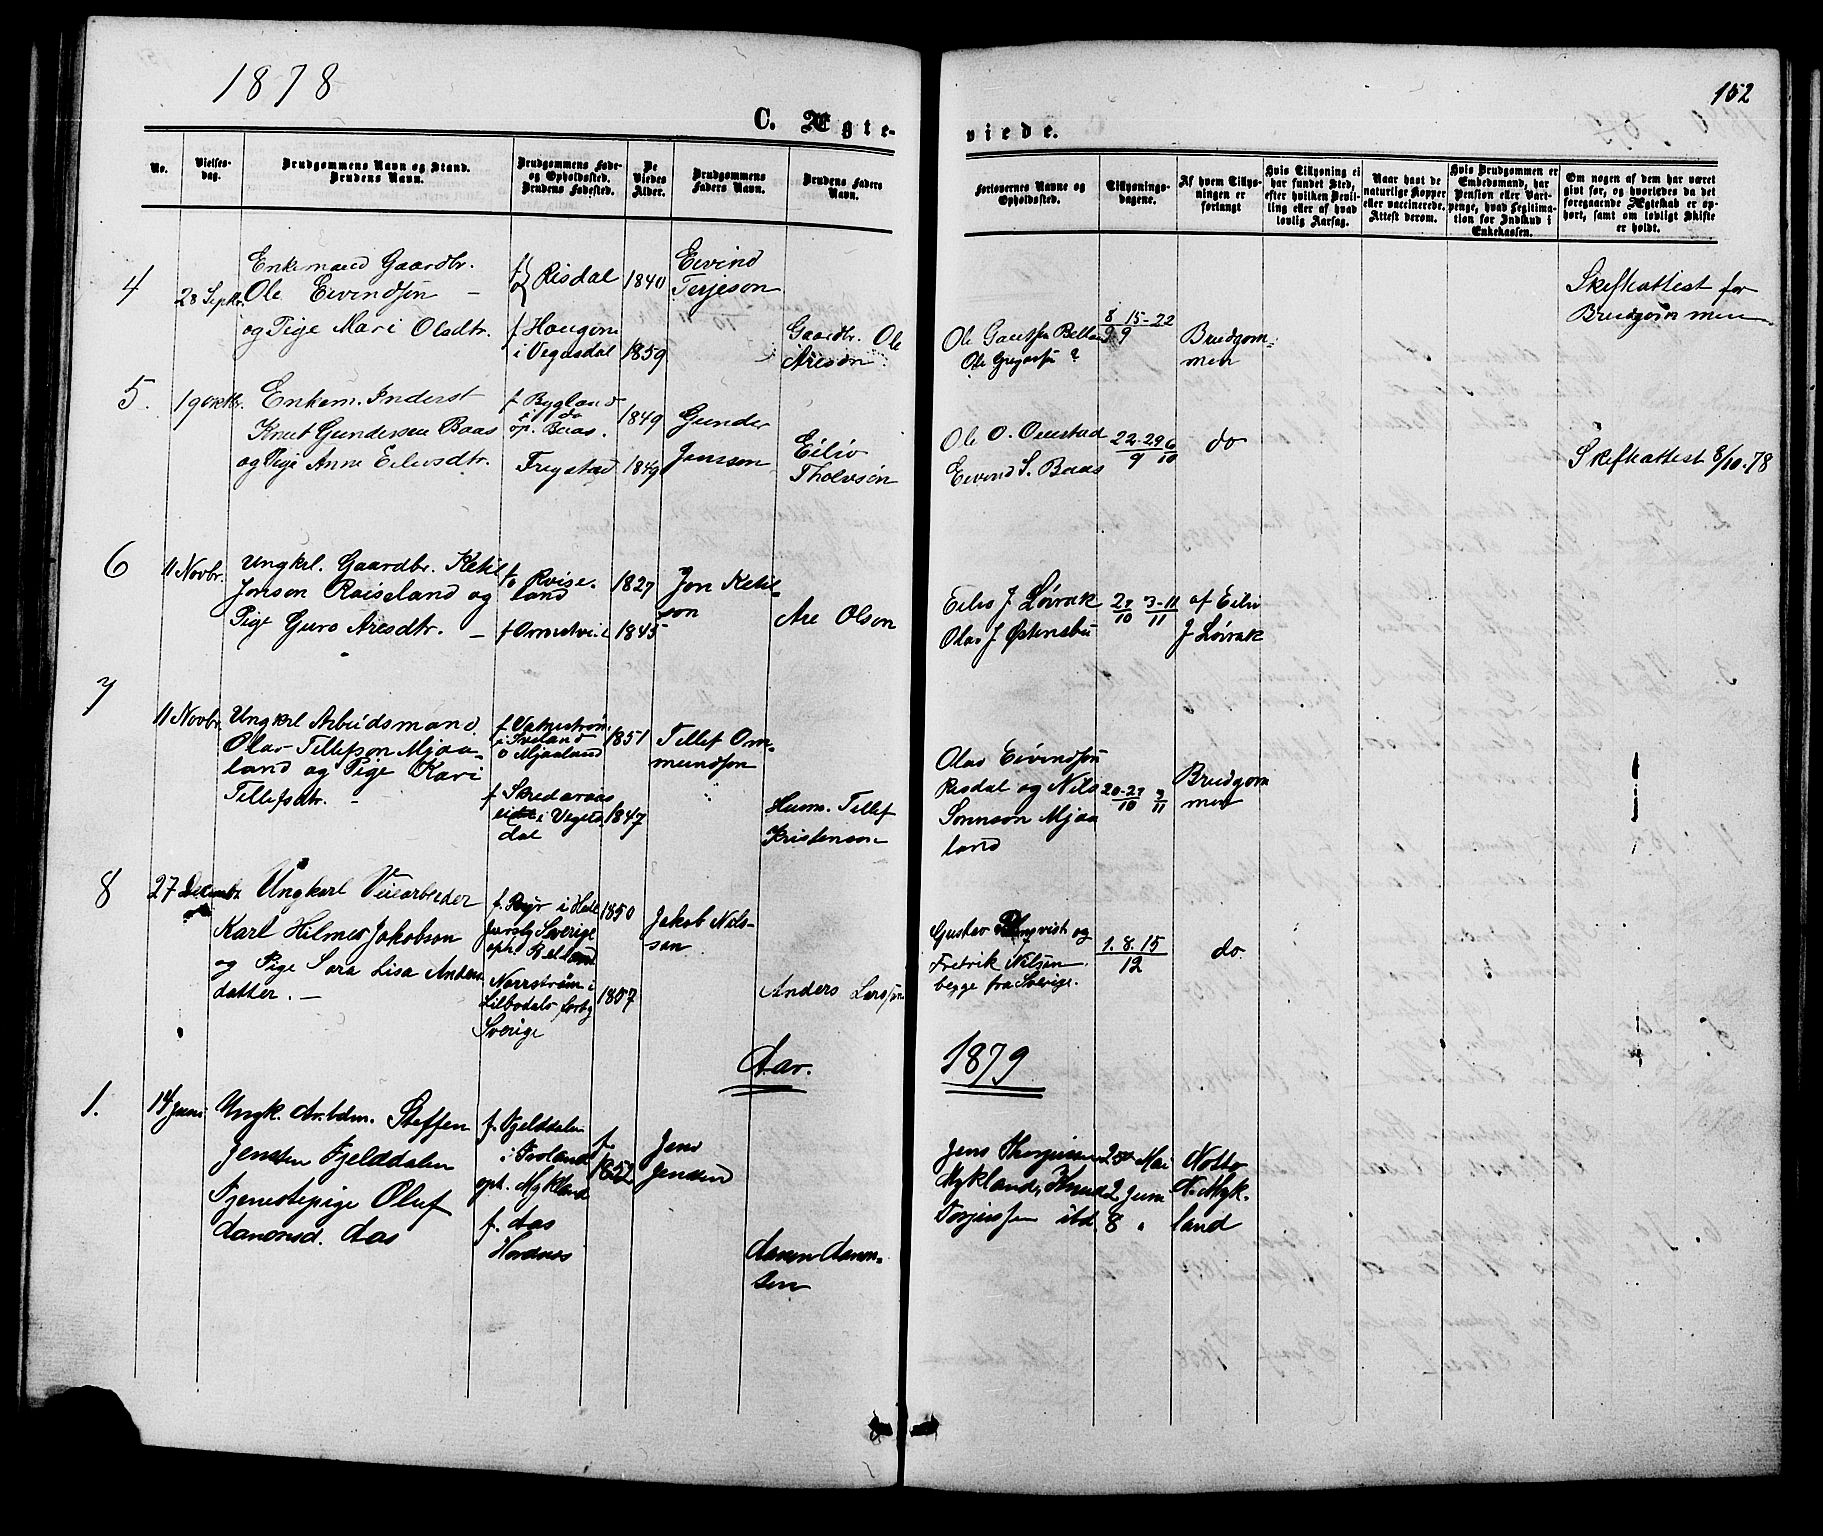 1878
152
C. Ægte-
viede.
No.
Vielses-
dag.
Brudgommens Navn og Stand.
Brudens Navn.
Brudgommens Føde-
og Opholdssted.
Brudens Fødested.
De
Viedes
Alder.
Brudgommens
Faders Navn.
Brudens Faders
Navn.
Forlovernes Navne og
Opholdssted.
Tillysnings-
dagene.
Af hvem Tillys-
ningen er
forlangt
Hvis Tillysning ei
har fundet Sted,
efter hvilken Bevil-
ling eller af hvad
lovlig Aarsag.
Naar havt de
naturlige Kopper
eller vaccinerede.
Attest derom.
Hvis Brudgommen er
Embedsmand, har
Pension eller Vart-
penge, hvad Legitima-
tion for Indskud i
Enkekassen.
Om nogen af dem har været
givt før, og hvorledes da det
foregaaende Ægteskab er op-
hørt, samt om lovligt Skifte
er holdt.
4
28 Septbr.
Enkemand Gaardbr.
Ole Eivindsøn
og Pige Mari Olsdtr.
Risdal
f Haugen
i Vegusdal
1840
1859
Eivind
Terjeson
Gaardbr. Ole
Areson
Ole Gauts
Ole Gregarsen ?
8 15-22
9 9
Brudgom-
men
Skifteattest for
Brudgommen
5.
19 Oktbr.
Enkem. Inderst
Knut Gundersen Baas
og Pige Anne Eilevsdtr.
f Bygland
op. Baas.
Frygstad
1849
1849
Gunder
Jonsson
Eiliv
Tholvsøn
Ole O.
Eivind S. Baas
22-29 6
9 10
do
Skifteattest 8/10.78
6
11 Novbr.
Ungkl. Gaardbr. Ketil
Jonson Røiseland og
Pige Guro Aresdtr.
f/o Røise-
land
f Ormetveit
1827
1845
Jon Ketil-
son
Are Olson
Eiliv J Løvrak
Olav J Østensbu
27 3-11
10 11
af Eiliv
J Løvrak
7
11 Novbr
Ungkl Arbeidsmand
Olav Tellefson Mjaa-
land og Pige Kari
Tellefsdtr.
f. Vatnestrøm
i Iveland
o Mjaaland
f Skredaraas
i Vegus
dal
1851
1847
Tellef Om-
mundson
Husm. Tellef
Kristenson
Olav Eivindsøn
Risdal og Nils
Sonnson Mjaa
land
20-27 3
10 11
Brudgom
men
8
27 Decembr
Ungkarl Veiarbeider
Karl Hilmer Jakobson
og Pige Sara Lisa Anders
datter.
Sverige
oph.
Norrstrøm i
Lilbodals
Sverige
1850
1857
Jakob Nils-
son
Anders Larssøn
Gustav og
Fredrik Nilsen
begge fra Sverige.
1. 8. 15
12
do
Aar.
1879
1.
14 Juni
Ungk. Arbdm. Steffen
Jensen Fjelddalen
Tjenestepige Oluf
Aanonsd. Aas
f. Fjelddalen
i Froland
oph. Mykland
f. Aas
Hordnes
f.
1852
Jens
Jensen
Aanon Aanon-
sen
Jens Thorjussen
Mykland, Knud
Torjussen ibd.
25 Mai
2 Juni
8 "
Notto
N. Myk-
land